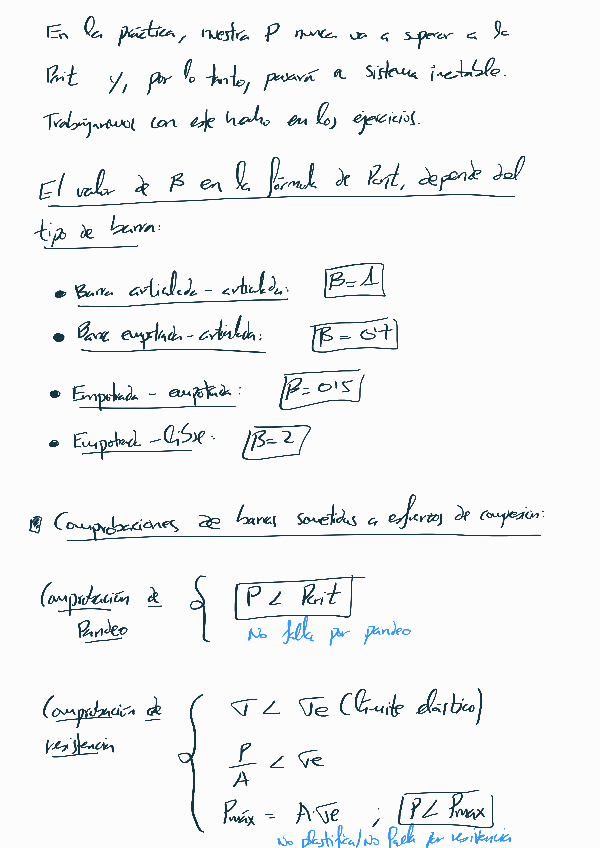 En la práctica, nuestra P nunca va a superar a la
Pcrit y, por lo tanto, pasará a sistema inestable.
Trabajaremos con este hecho en los ejercicios.
El valor de B en la fórmula de Pcrit, depende del
tipo de barra:
• Barra articulada - articulada: B = 1
• Barra empotrada - articulada: B = 0'7
• Empotrada - empotrada: B = 0'5
• Empotrada - libre: B = 2
Comprobaciones de barras sometidas a esfuerzos de compresión:
Comprobación de Pandeo { P < Pcrit
No falla por pandeo
Comprobación de resistencia { σ < σe (límite elástico)
P/A < σe
Pmáx = A·σe ; P < Pmax
No plastifica/No falla por resistencia